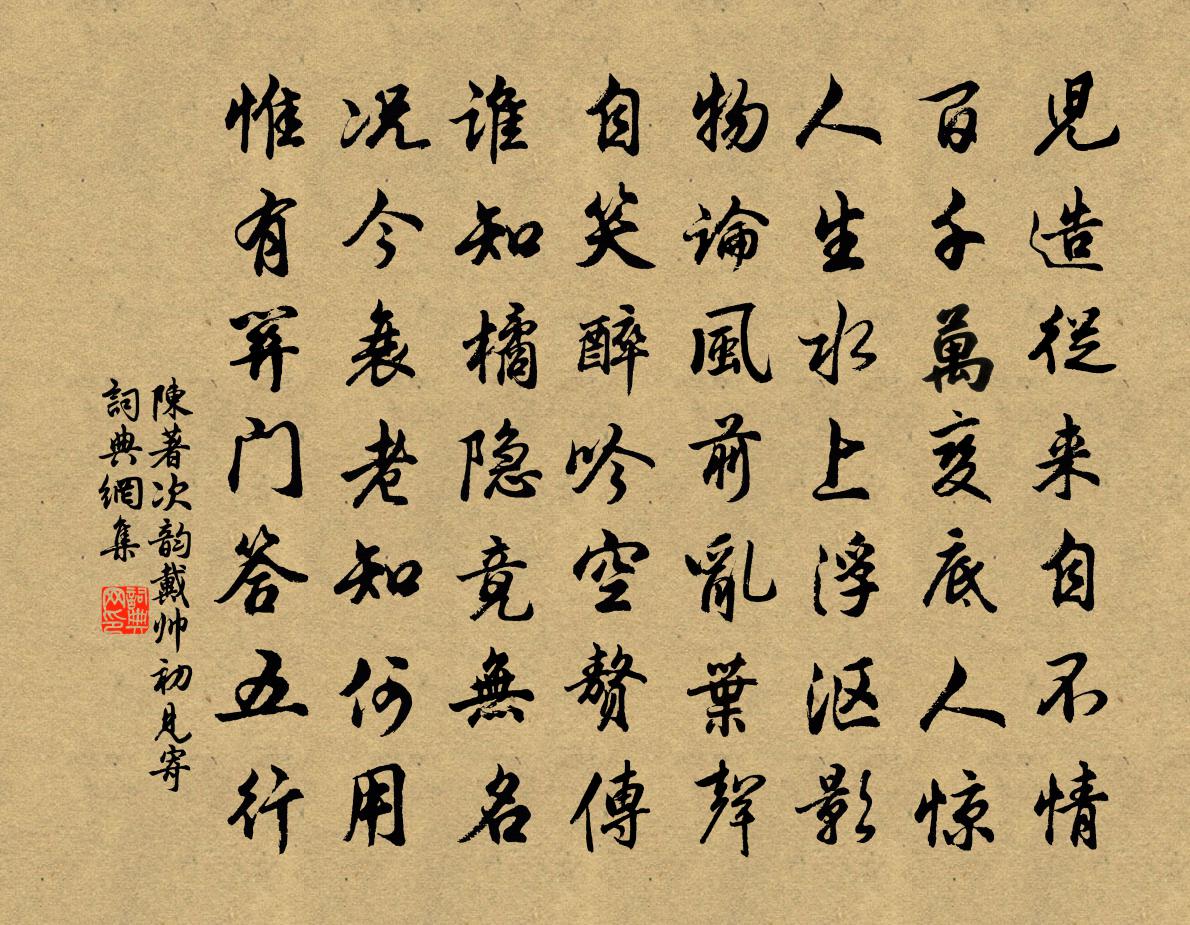 児造從来自不情
百千萬変底人惊
人生水上浮沤影
物論風前亂葉聲
自笑醉吟空赘傳
谁知橘隐竟無名
况今衰老知何用
惟有筭门答五行
陳著次韵戴帅初见寄
詞典網集
詞典网印